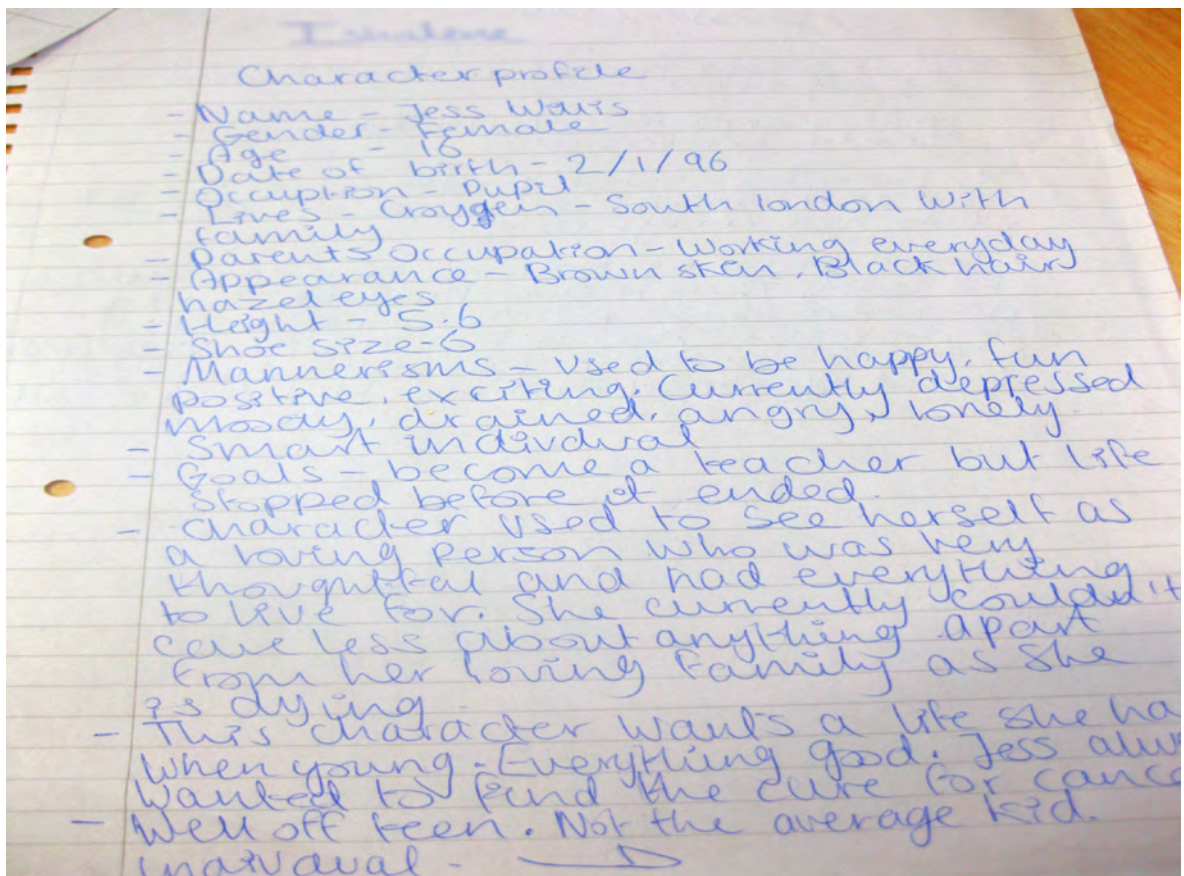 Character profile
- Name - Jess Wallis
- Gender - Female
- Age - 16
- Date of birth - 2/1/96
- Occuption - Pupil
- Lives - Croygen - South london With
family
- Parents Occupation - Working everyday
- Appearance - Brown sken, Black hair,
hazel eyes
- Height - 5.6
- Shoe size - 6
- Mannerisms - Used to be happy, fun
positive, exciting. Currently depressed
moody, drained, angry, lonely.
- Smart indivdual
- Goals - become a teacher but life
stopped before it ended.
- character used to see herself as
a loving person who was very
thoughtful and had everything
to live for. She currently couldn't
care less about anything apart
from her loving family as she
is dying.
- This character wants a life she ha
When young. Everything good. Jess alwa
Wanted to find the cure for cance
- Well off teen. Not the average kid.
indivdual -